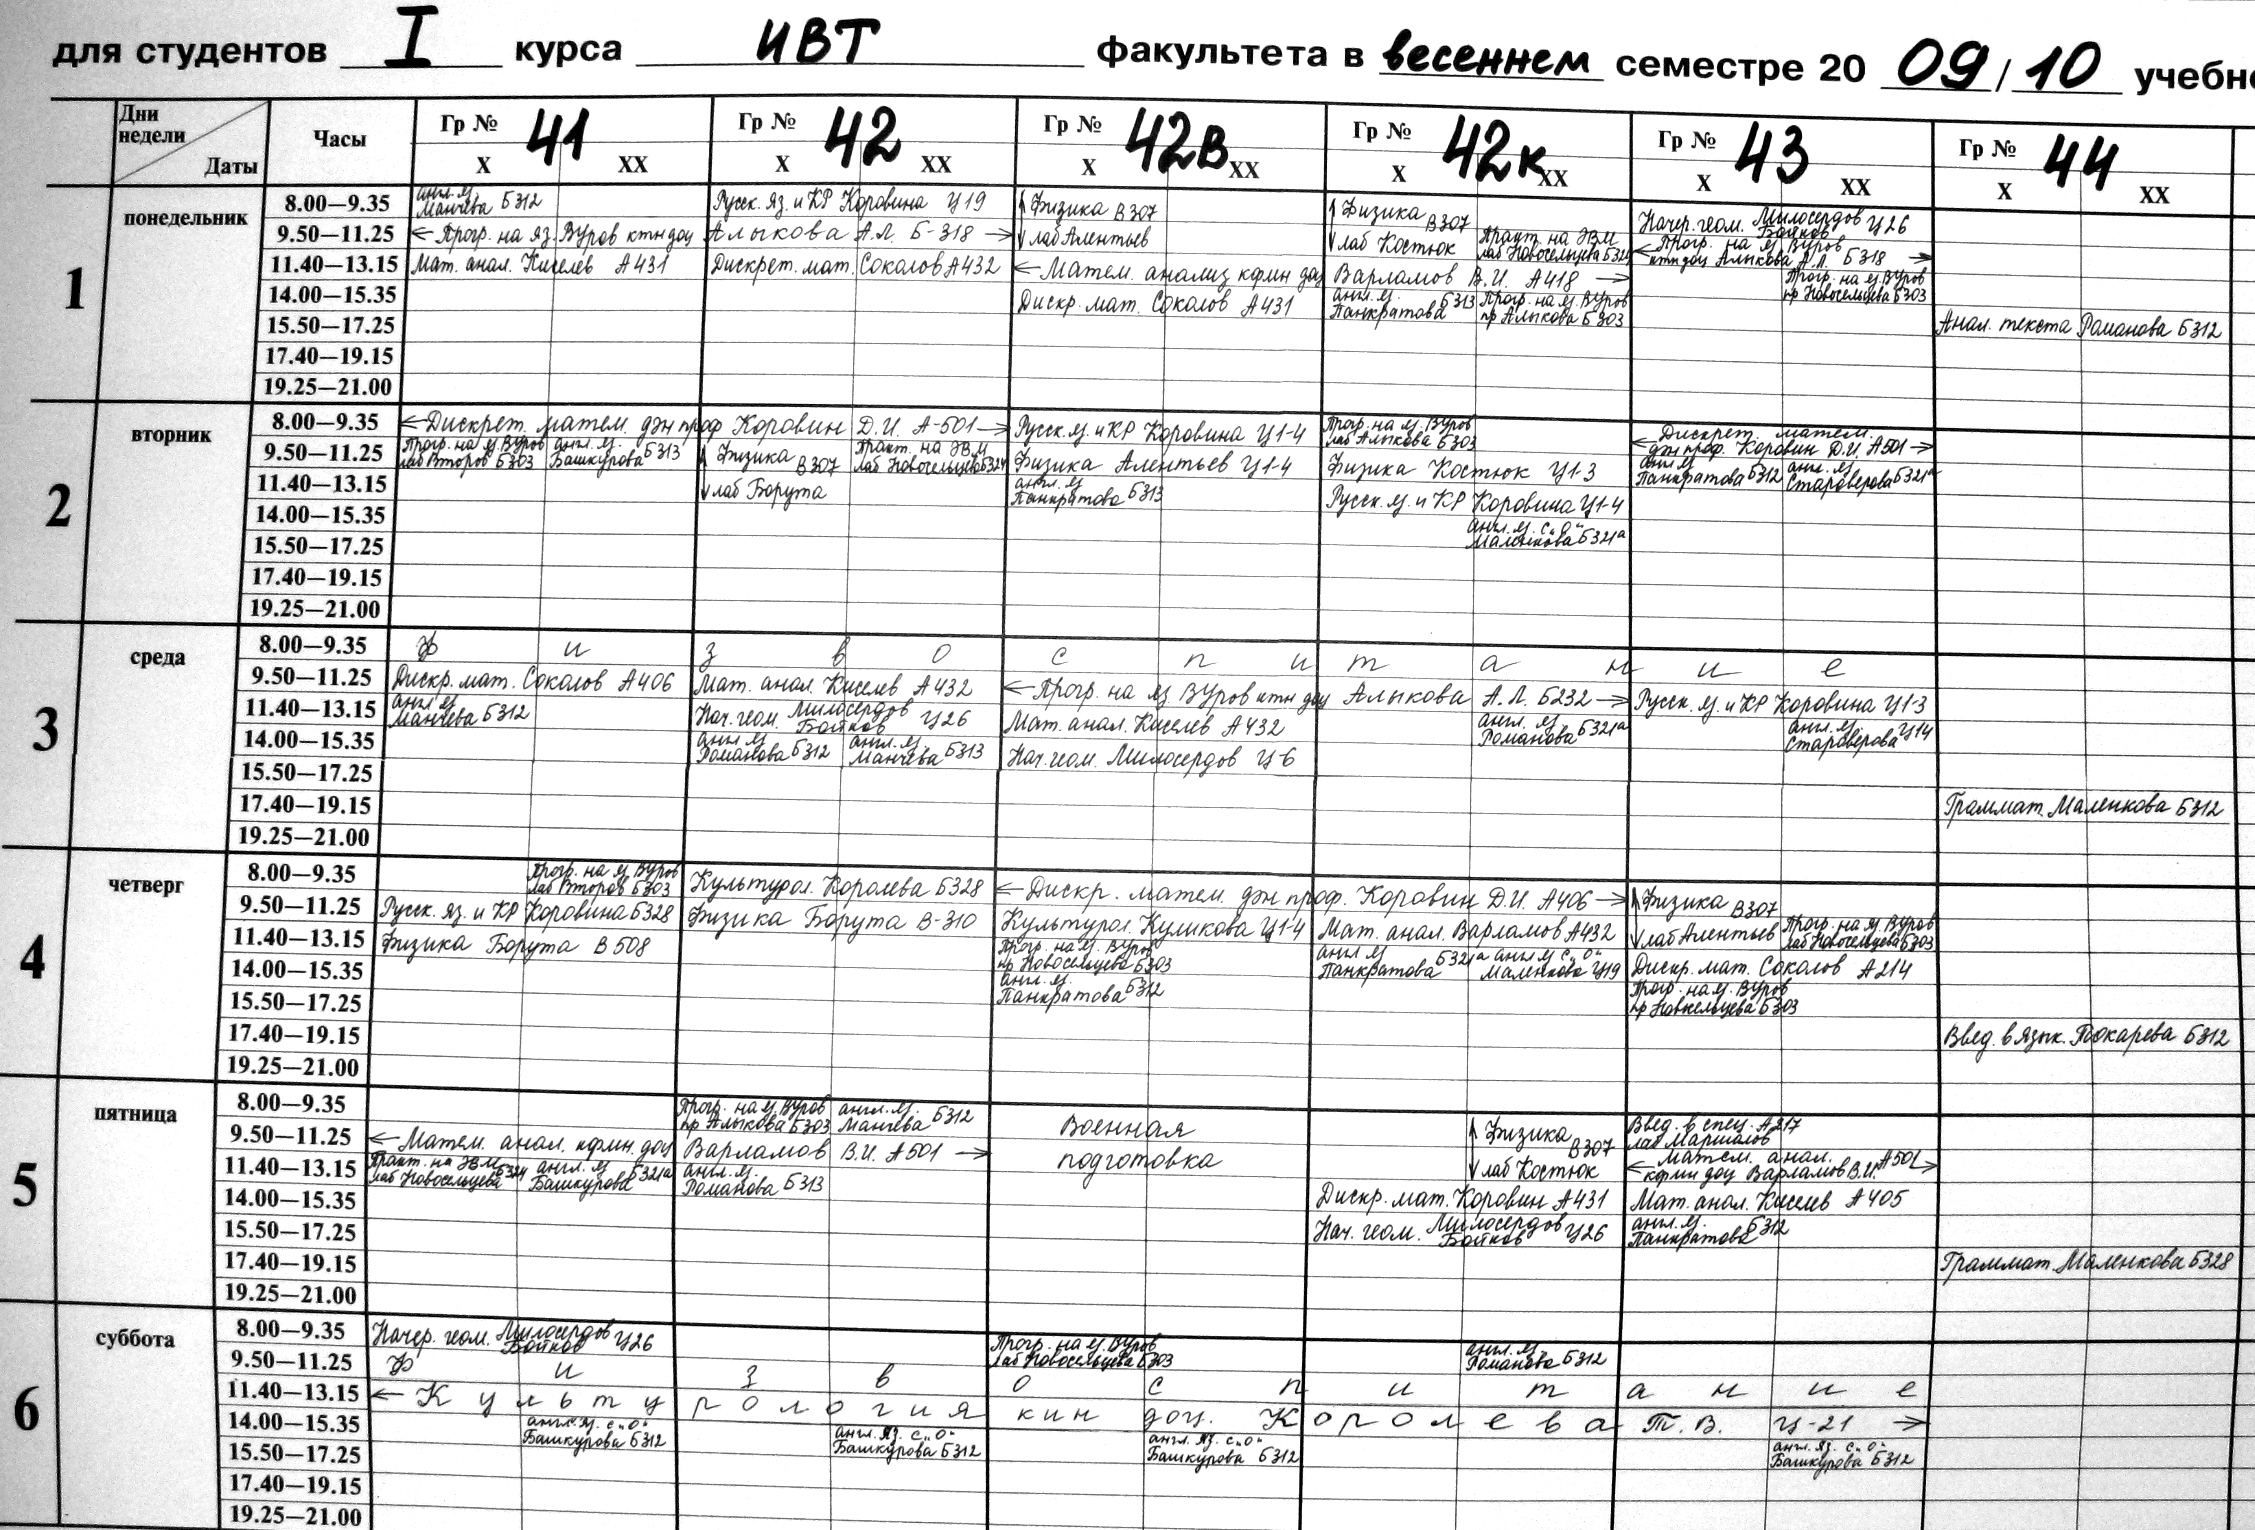 для студентов I курса ИВТ факультета в весеннем семестре 20 09/10 учебно
Дни недели Даты Часы Гр № 41 Гр № 42 Гр № 42в Гр № 42к Гр № 43 Гр № 44
X XX X XX X XX X XX X XX X XX
1 понедельник
8.00—9.35 англ. яз. Манчева Б312 Русск. яз. и КР Коровина Ц19 ↑ Физика В307 ↑ Физика В307 Начер. геом. Милосердов Бойков Ц26
9.50—11.25 ← Прогр. на яз. ВУров ктн доц Алыкова А.Л. Б-318 → ↓ лаб Алентьев ↓ лаб Костюк Практ. на ЭВМ лаб Новосельцева Б324 ← Прогр. на яз ВУров ктн доц Алыкова А.Л. Б318 →
11.40—13.15 Мат. анал. Киселёв А431 Дискрет. мат. Соколов А432 ← Матем. анализ кфмн доц Варламов В.И. А418 → Прогр. на яз. ВУров пр Новосельцева Б303
14.00—15.35 Дискр. мат. Соколов А431 англ. яз. Панкратова Б313 Прогр. на яз. ВУров пр Алыкова Б303
15.50—17.25 Анал. текста Романова Б312
17.40—19.15
19.25—21.00
2 вторник
8.00—9.35 ← Дискрет. матем. дэн проф Коровин Д.И. А-501 → Русск. яз. и КР Коровина Ц1-4 Прогр. на яз. ВУров лаб Алыкова Б303 ← Дискрет. матем. дэн проф. Коровин Д.И. А501 →
9.50—11.25 Прогр. на яз ВУров лаб Второв Б303 англ. яз. Башкурова Б313 ↑ Физика В307 Практ. на ЭВМ лаб Новосельцева Б324 Физика Алентьев Ц1-4 Физика Костюк Ц1-3 англ яз Панкратова Б312 англ. яз Староверова Б321а
11.40—13.15 ↓ лаб Борута англ. яз Панкратова Б313 Русск. яз. и КР Коровина Ц1-4
14.00—15.35 англ. яз. с „0" Маленкова Б321а
15.50—17.25
17.40—19.15
19.25—21.00
3 среда
8.00—9.35 Ф и з в о с п и т а н и е
9.50—11.25 Дискр. мат. Соколов А406 Мат. анал. Киселёв А432 ← Прогр. на яз ВУров ктн доц Алыкова А.Л. Б232 → Русск. яз. и КР Коровина Ц1-3
11.40—13.15 англ яз Манчева Б312 Нач. геом. Милосердов Бойков Ц26 Мат. анал. Киселев А432 англ. яз Романова Б321а англ. яз Староверова Ц14
14.00—15.35 англ яз Романова Б312 англ. яз. Манчева Б313 Нач. геом. Милосердов Ц-6
15.50—17.25
17.40—19.15 Граммат. Маленкова Б312
19.25—21.00
4 четверг
8.00—9.35 Прогр. на яз ВУров лаб Второв Б303 Культурол. Королева Б328 ← Дискр. матем. дэн проф. Коровин Д.И. А406 → ↑ Физика В307
9.50—11.25 Русск. яз. и КР Коровина Б328 Физика Борута В-310 Культурол. Куликова Ц1-4 Мат. анал. Варламов А432 ↓ лаб Алентьев Прогр. на яз. ВУров лаб Новосельцева Б303
11.40—13.15 Физика Борута В508 Прогр. на яз. ВУров пр Новосельцева Б303 англ яз Панкратова Б321а англ яз с „0" Маленкова Ц19 Дискр. мат. Соколов А214
14.00—15.35 англ. яз. Панкратова Б312 Прогр. на яз. ВУров пр Новосельцева Б303
15.50—17.25
17.40—19.15 Введ. в язык. Токарева Б312
19.25—21.00
5 пятница
8.00—9.35 Прогр. на яз ВУров пр Алыкова Б303 англ. яз. Манчева Б312 Военная ↑ Физика В307 Введ. в спец. А217 лаб Маршалов
9.50—11.25 ← Матем. анал. кфмн. доц Варламов В.И. А501 → подготовка ↓ лаб Костюк ← матем. анал. кфмн доц Варламов В.И. А501 →
11.40—13.15 Практ. на ЭВМ лаб Новосельцева Б324 англ. яз Башкурова Б321а англ. яз. Романова Б313 Дискр. мат. Коровин А431 Мат. анал. Киселев А405
14.00—15.35 Нач. геом. Милосердов Бойков Ц26 англ. яз. Панкратова Б312
15.50—17.25
17.40—19.15 Граммат. Маленкова Б328
19.25—21.00
6 суббота
8.00—9.35 Начер. геом. Милосердов Бойков Ц26 Прогр. на яз. ВУров лаб Новосельцева Б303 англ. яз. Романова Б312
9.50—11.25 Ф и з в о с п и т а н и е
11.40—13.15 ← Культурология кин доц. Королева Т.В. Ц-21 →
14.00—15.35 англ. яз. с „0" Башкурова Б312 англ. яз. с „0" Башкурова Б312 англ. яз. с „0" Башкурова Б312 англ. яз. с „0" Башкурова Б312
15.50—17.25
17.40—19.15
19.25—21.00